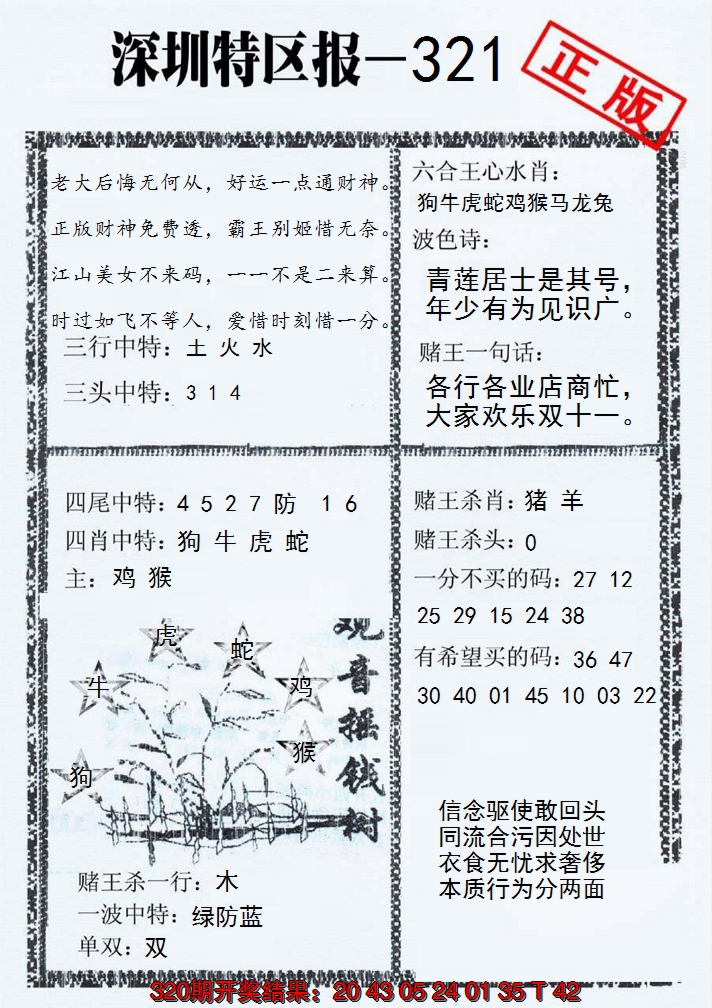 深圳特区报－321
正版
老大后悔无何从，好运一点通财神。
正版财神免费透，霸王别姬惜无奈。
江山美女不来码，一一不是二来算。
时过如飞不等人，爱惜时刻惜一分。
三行中特：土 火 水
三头中特：3 1 4
六合王心水肖：
狗牛虎蛇鸡猴马龙兔
波色诗：
青莲居士是其号，
年少有为见识广。
赌王一句话：
各行各业店商忙，
大家欢乐双十一。
四尾中特：4 5 2 7 防 1 6
四肖中特：狗 牛 虎 蛇
主：鸡 猴
虎
蛇
牛
鸡
猴
狗
观音摇钱树
赌王杀一行：木
一波中特：绿防蓝
单双：双
赌王杀肖：猪 羊
赌王杀头：0
一分不买的码：27 12
25 29 15 24 38
有希望买的码：36 47
30 40 01 45 10 03 22
信念驱使敢回头
同流合污因处世
衣食无忧求奢侈
本质行为分两面
320期开奖结果：20 43 05 24 01 35 T 42